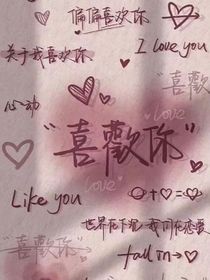 偏偏喜欢你
关于我喜欢你
I love you
心动
"喜欢你"
LOVE
"喜歡你"
LOVE
Like you
+ =
世界在下沉 我们在恋爱
"喜欢你"
fall in →